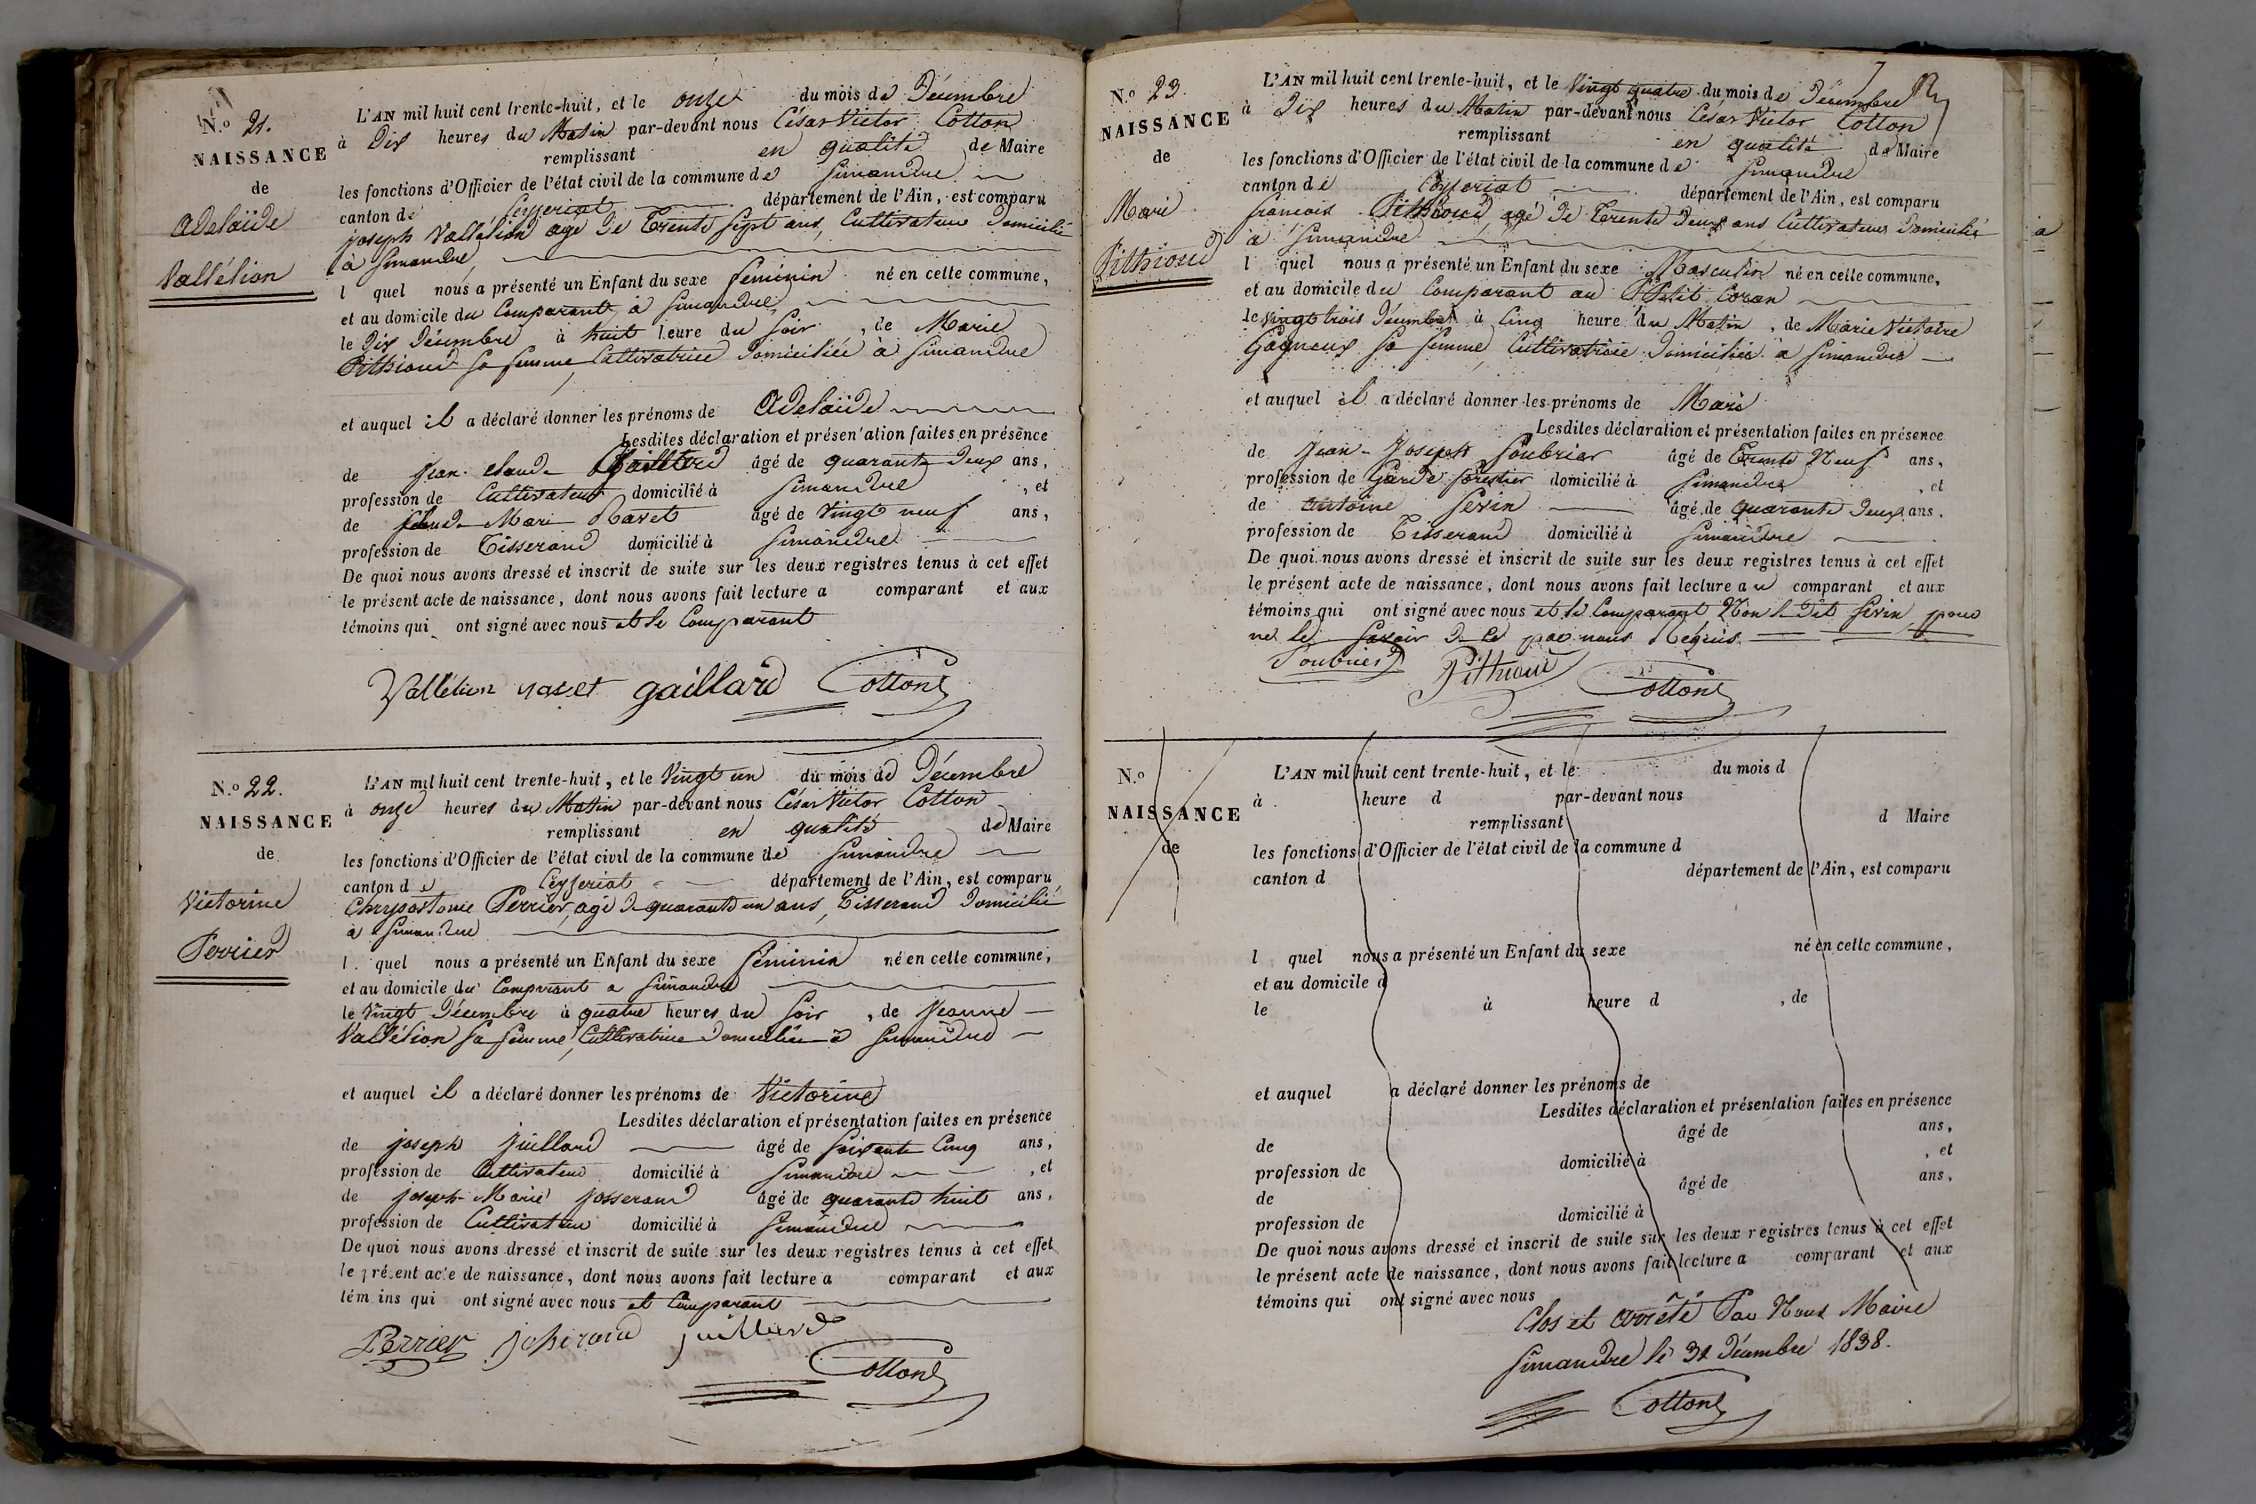 N.º 21.
NAISSANCE
de
Adelaïde
Vallélion
L'AN mil huit cent trente-huit, et le onze du mois de Décembre
à Dix heures du Matin par-devant nous César Victor Cotton
remplissant en qualité de Maire
les fonctions d'Officier de l'état civil de la commune de Simandre
canton de Ceyzeriat département de l'Ain, est comparu
joseph Vallélion agé de Trente sept ans, Cultivateur Domicilié
à Simandre
l quel nous a présenté un Enfant du sexe féminin né en cette commune,
et au domicile du Comparant à Simandre
le Dix Décembre à huit heure du Soir, de Marie
Pithioud sa femme, Cultivatrice Domiciliée à Simandre
et auquel il a déclaré donner les prénoms de Adelaïde
Lesdites déclaration et présentation faites en présence
de Jean claude Gaillard âgé de quarante Deux ans,
profession de Cultivateur domicilié à Simandre, et
de Claude Marie Ravet âgé de Vingt neuf ans,
profession de Tisserand domicilié à Simandre
De quoi nous avons dressé et inscrit de suite sur les deux registres tenus à cet effet
le présent acte de naissance, dont nous avons fait lecture a comparant et aux
témoins qui ont signé avec nous et le Comparant
Vallélion ravet gaillard Cotton
N.º 22.
NAISSANCE
de
Victorine
Perrier
L'AN mil huit cent trente-huit, et le Vingt un du mois de Décembre
à onze heures du Matin par-devant nous César Victor Cotton
remplissant en qualité de Maire
les fonctions d'Officier de l'état civil de la commune de Simandre
canton de Ceyzeriat département de l'Ain, est comparu
Chrysostome Perrier, agé de quarante un ans, Tisserand Domicilié
à Simandre
l quel nous a présenté un Enfant du sexe féminin né en cette commune,
et au domicile du Comparant a Simandre
le Vingt Décembre à quatre heures du Soir, de Jeanne
Vallélion sa femme, Cultivatrice Domiciliée à Simandre
et auquel il a déclaré donner les prénoms de Victorine
Lesdites déclaration et présentation faites en présence
de joseph juillard âgé de Soixante Cinq ans,
profession de Cultivateur domicilié à Simandre, et
de joseph Marie josserand âgé de quarante huit ans,
profession de Cultivateur domicilié à Simandre
De quoi nous avons dressé et inscrit de suite sur les deux registres tenus à cet effet
le présent acte de naissance, dont nous avons fait lecture a comparant et aux
témoins qui ont signé avec nous et Comparant
Perrier josserand juillard
Cotton
N.º 23.
NAISSANCE
de
Marie
Pithioud
L'AN mil huit cent trente-huit, et le Vingt quatre du mois de Décembre
à Dix heures du Matin par-devant nous César Victor Cotton
remplissant en qualité de Maire
les fonctions d'Officier de l'état civil de la commune de Simandre
canton de Ceyzeriat département de l'Ain, est comparu
francois Pithioud, agé de Trente Deux ans Cultivateur Domicilié
à Simandre
l quel nous a présenté un Enfant du sexe Masculin né en cette commune,
et au domicile du Comparant au Petit Coran
le vingt trois Décembre à Cinq heure du Matin, de Marie Victoire
Gagneux sa femme, Cultivatrice Domiciliée a Simandre
et auquel il a déclaré donner les prénoms de Marie
Lesdites déclaration et présentation faites en présence
de Jean-Joseph Soubrier âgé de Trente Neuf ans,
profession de Garde forestier domicilié à Simandre, et
de Antoine Sevin âgé de quarante Deux ans.
profession de Tisserand domicilié à Simandre
De quoi nous avons dressé et inscrit de suite sur les deux registres tenus à cet effet
le présent acte de naissance, dont nous avons fait lecture au comparant et aux
témoins qui ont signé avec nous et le Comparant Non le Dit Sevin, pour
ne le Savoir de ce par nous Requis
Soubrier Pithioud Cotton
N.º
NAISSANCE
de
L'AN mil huit cent trente-huit, et le du mois d
à heure d par-devant nous
remplissant d Maire
les fonctions d'Officier de l'état civil de la commune d
canton d département de l'Ain, est comparu
l quel nous a présenté un Enfant du sexe né en cette commune,
et au domicile d
le à heure d, de
et auquel a déclaré donner les prénoms de
Lesdites déclaration et présentation faites en présence
de âgé de ans,
profession de domicilié à, et
de âgé de ans,
profession de domicilié à
De quoi nous avons dressé et inscrit de suite sur les deux registres tenus à cet effet
le présent acte de naissance, dont nous avons fait lecture a comparant et aux
témoins qui ont signé avec nous
Clos et arrêté Par Nous Maire
Simandre le 31 Décembre 1838.
Cotton